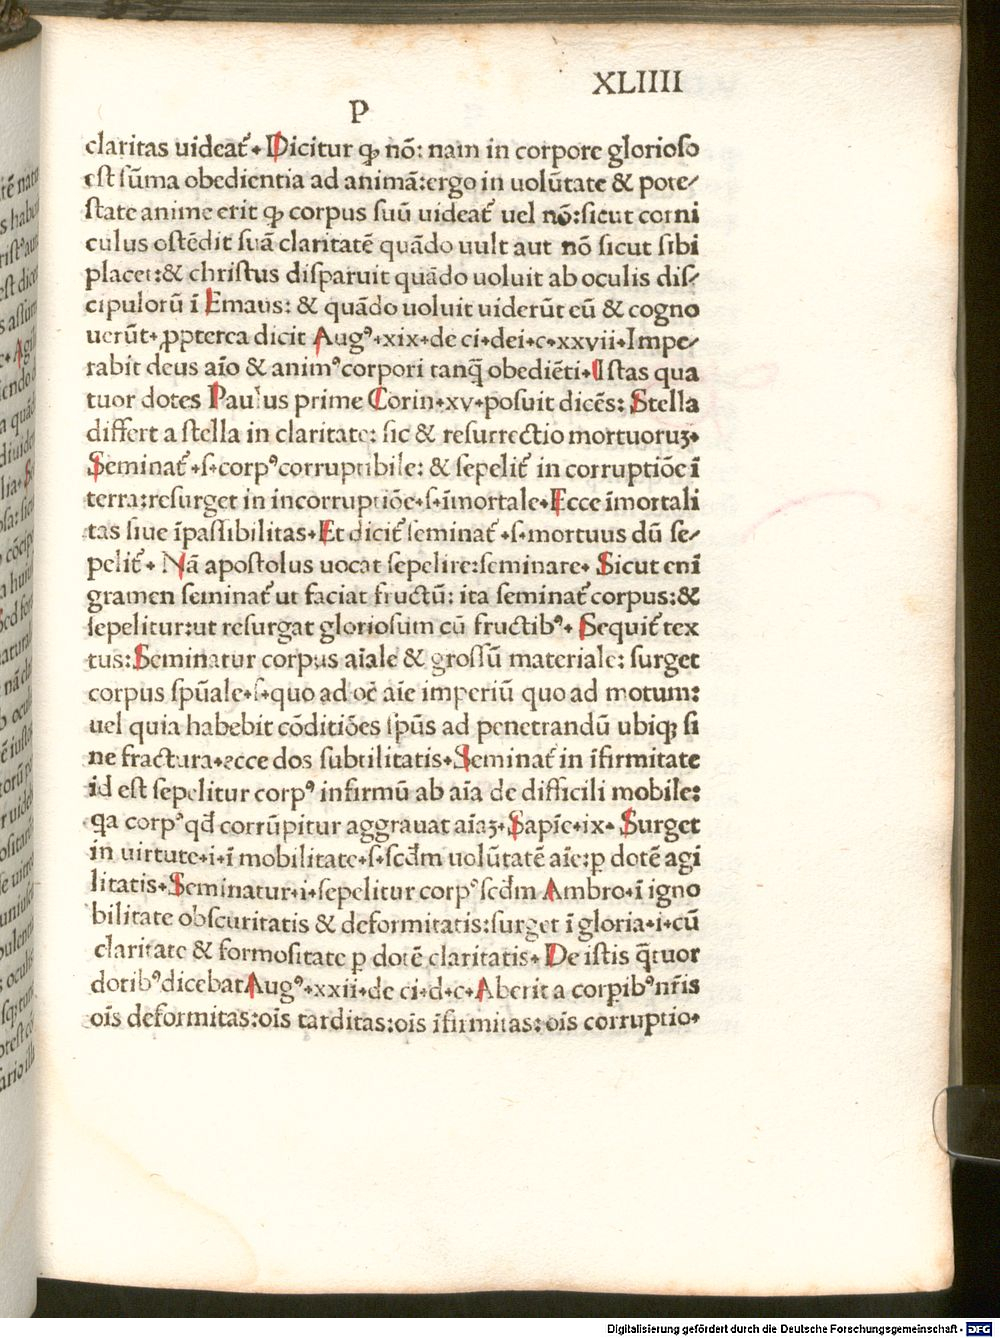 XLIIII
P
claritas uideat᷑. Dicitur ꝙ nõ: nam in corpore glorioso
est sũma obedientia ad animã:ergo in uolũtate & pote-
state anime erit ꝙ corpus suũ uideat᷑ uel nõ:sicut corni
culus ostẽdit suã claritatẽ quãdo uult aut nõ sicut sibi
placet:& christus disparuit quãdo uoluit ab oculis dis-
cipulorũ ĩ Emaus: & quãdo uoluit uiderũt eũ & cogno
uerũt. ꝓpterea dicit Augꝰ.xix.de ci.dei.c.xxvii.Impe-
rabit deus aĩo & animꝰ corpori tanq̃ obediẽti.Istas qua
tuor dotes Paulus prime Corin.xv.posuit dicẽs: Stella
differt a stella in claritate: sic & resurrectio mortuoruꝫ.
Seminat᷑ .s.corpꝰ corruptibile: & sepelit᷑ in corruptiõe ĩ
terra:resurget in incorruptiõe.s.ĩmortale.Ecce ĩmortali
tas siue ĩpassibilitas.Et dicit᷑ seminat᷑ .s.mortuus dũ se-
pelit᷑. Nã apostolus uocat sepelire:seminare. Sicut enĩ
gramen seminat᷑ ut faciat fructũ: ita seminat᷑ corpus:&
sepelitur:ut resurgat gloriosum cũ fructibꝰ. Sequit᷑ tex
tus:Seminatur corpus aĩale & grossũ materiale: surget
corpus spũale.s.quo ad oẽ aĩe imperiũ quo ad motum:
uel quia habebit cõditiões spũs ad penetrandũ ubiqꝫ si
ne fractura.ecce dos subtilitatis.Seminat᷑ in ĩfirmitate
id est sepelitur corpꝰ infirmũ ab aĩa de difficili mobile:
qa corpꝰ qd̃ corrũpitur aggrauat aĩaꝫ.Sapĩe.ix. Surget
in uirtute.i.ĩ mobilitate.s.scd̃m uolũtatẽ aĩe:ꝑ dotẽ agi
litatis.Seminatur.i.sepelitur corpꝰ scd̃m Ambro.ĩ igno
bilitate obscuritatis & deformitatis:surget ĩ gloria.i.cũ
claritate & formositate ꝑ dotẽ claritatis. De istis q̃tuor
dotibꝰ dicebat Augꝰ.xxii.de ci.d.c.Aberit a corpibꝰ nr̃is
oĩs deformitas:oĩs tarditas:oĩs ĩfirmitas:oĩs corruptio.
Digitalisierung gefördert durch die Deutsche Forschungsgemeinschaft - DFG